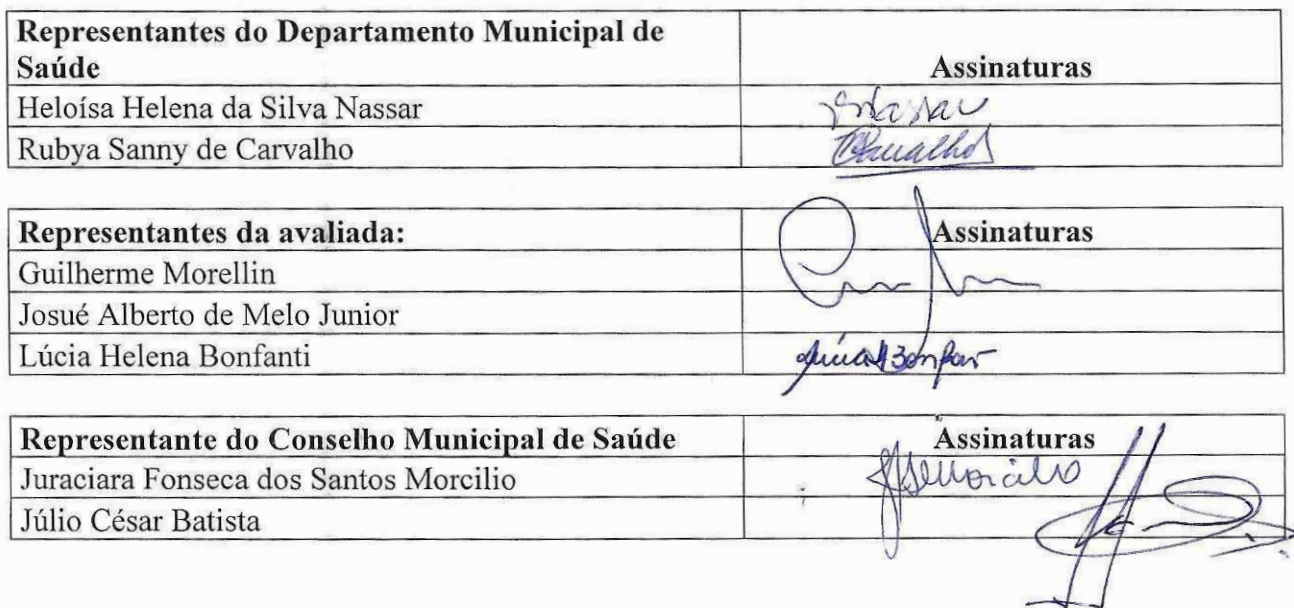 Representantes do Departamento Municipal de
Saúde
Assinaturas
Heloísa Helena da Silva Nassar
Rubya Sanny de Carvalho
Carvalho
Representantes da avaliada:
Assinaturas
Guilherme Morellin
Josué Alberto de Melo Junior
Lúcia Helena Bonfanti
Representante do Conselho Municipal de Saúde
Assinaturas
Juraciara Fonseca dos Santos Morcilio
Júlio César Batista